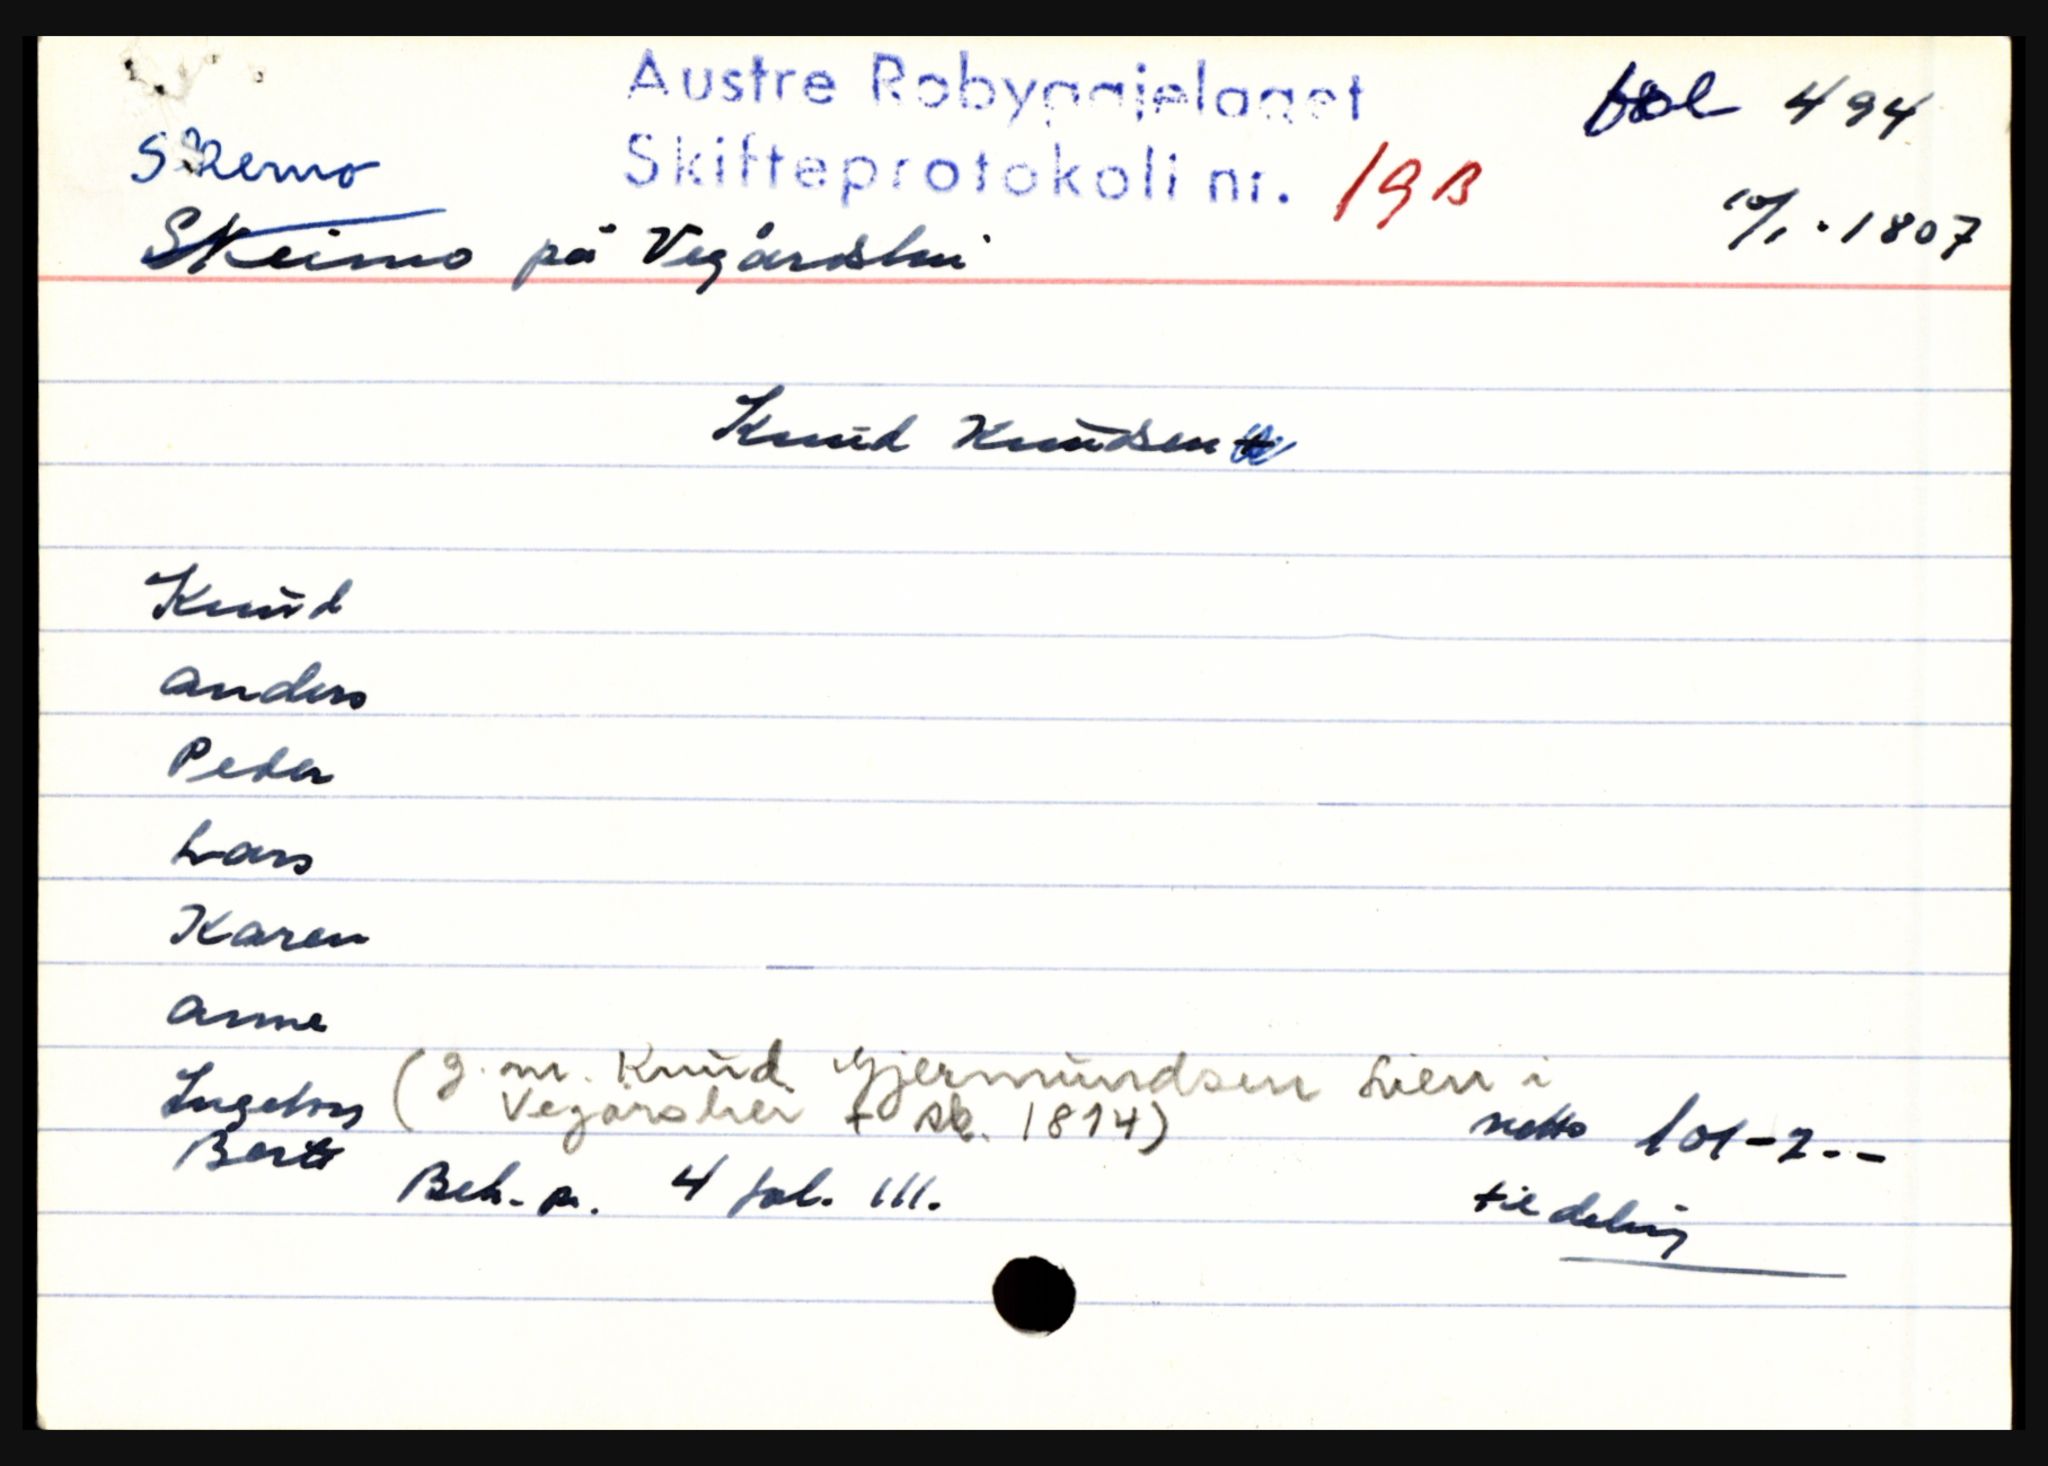 Austre Robyggjelaget
fol 494
Skemo
Skifteprotokoll nr. 19B
10/1 . 1807
Skeimo på Vegårdshei
Knud Knudsen
Knud
Anders
Peder
Lars
Karen
Anne
Ingeborg (g. m. Knud Gjermundsen Lien i
Vegårshei + sk. 1814)
netto 101-2--
Berte
Beh. p. 4 fol. 111.
til deling